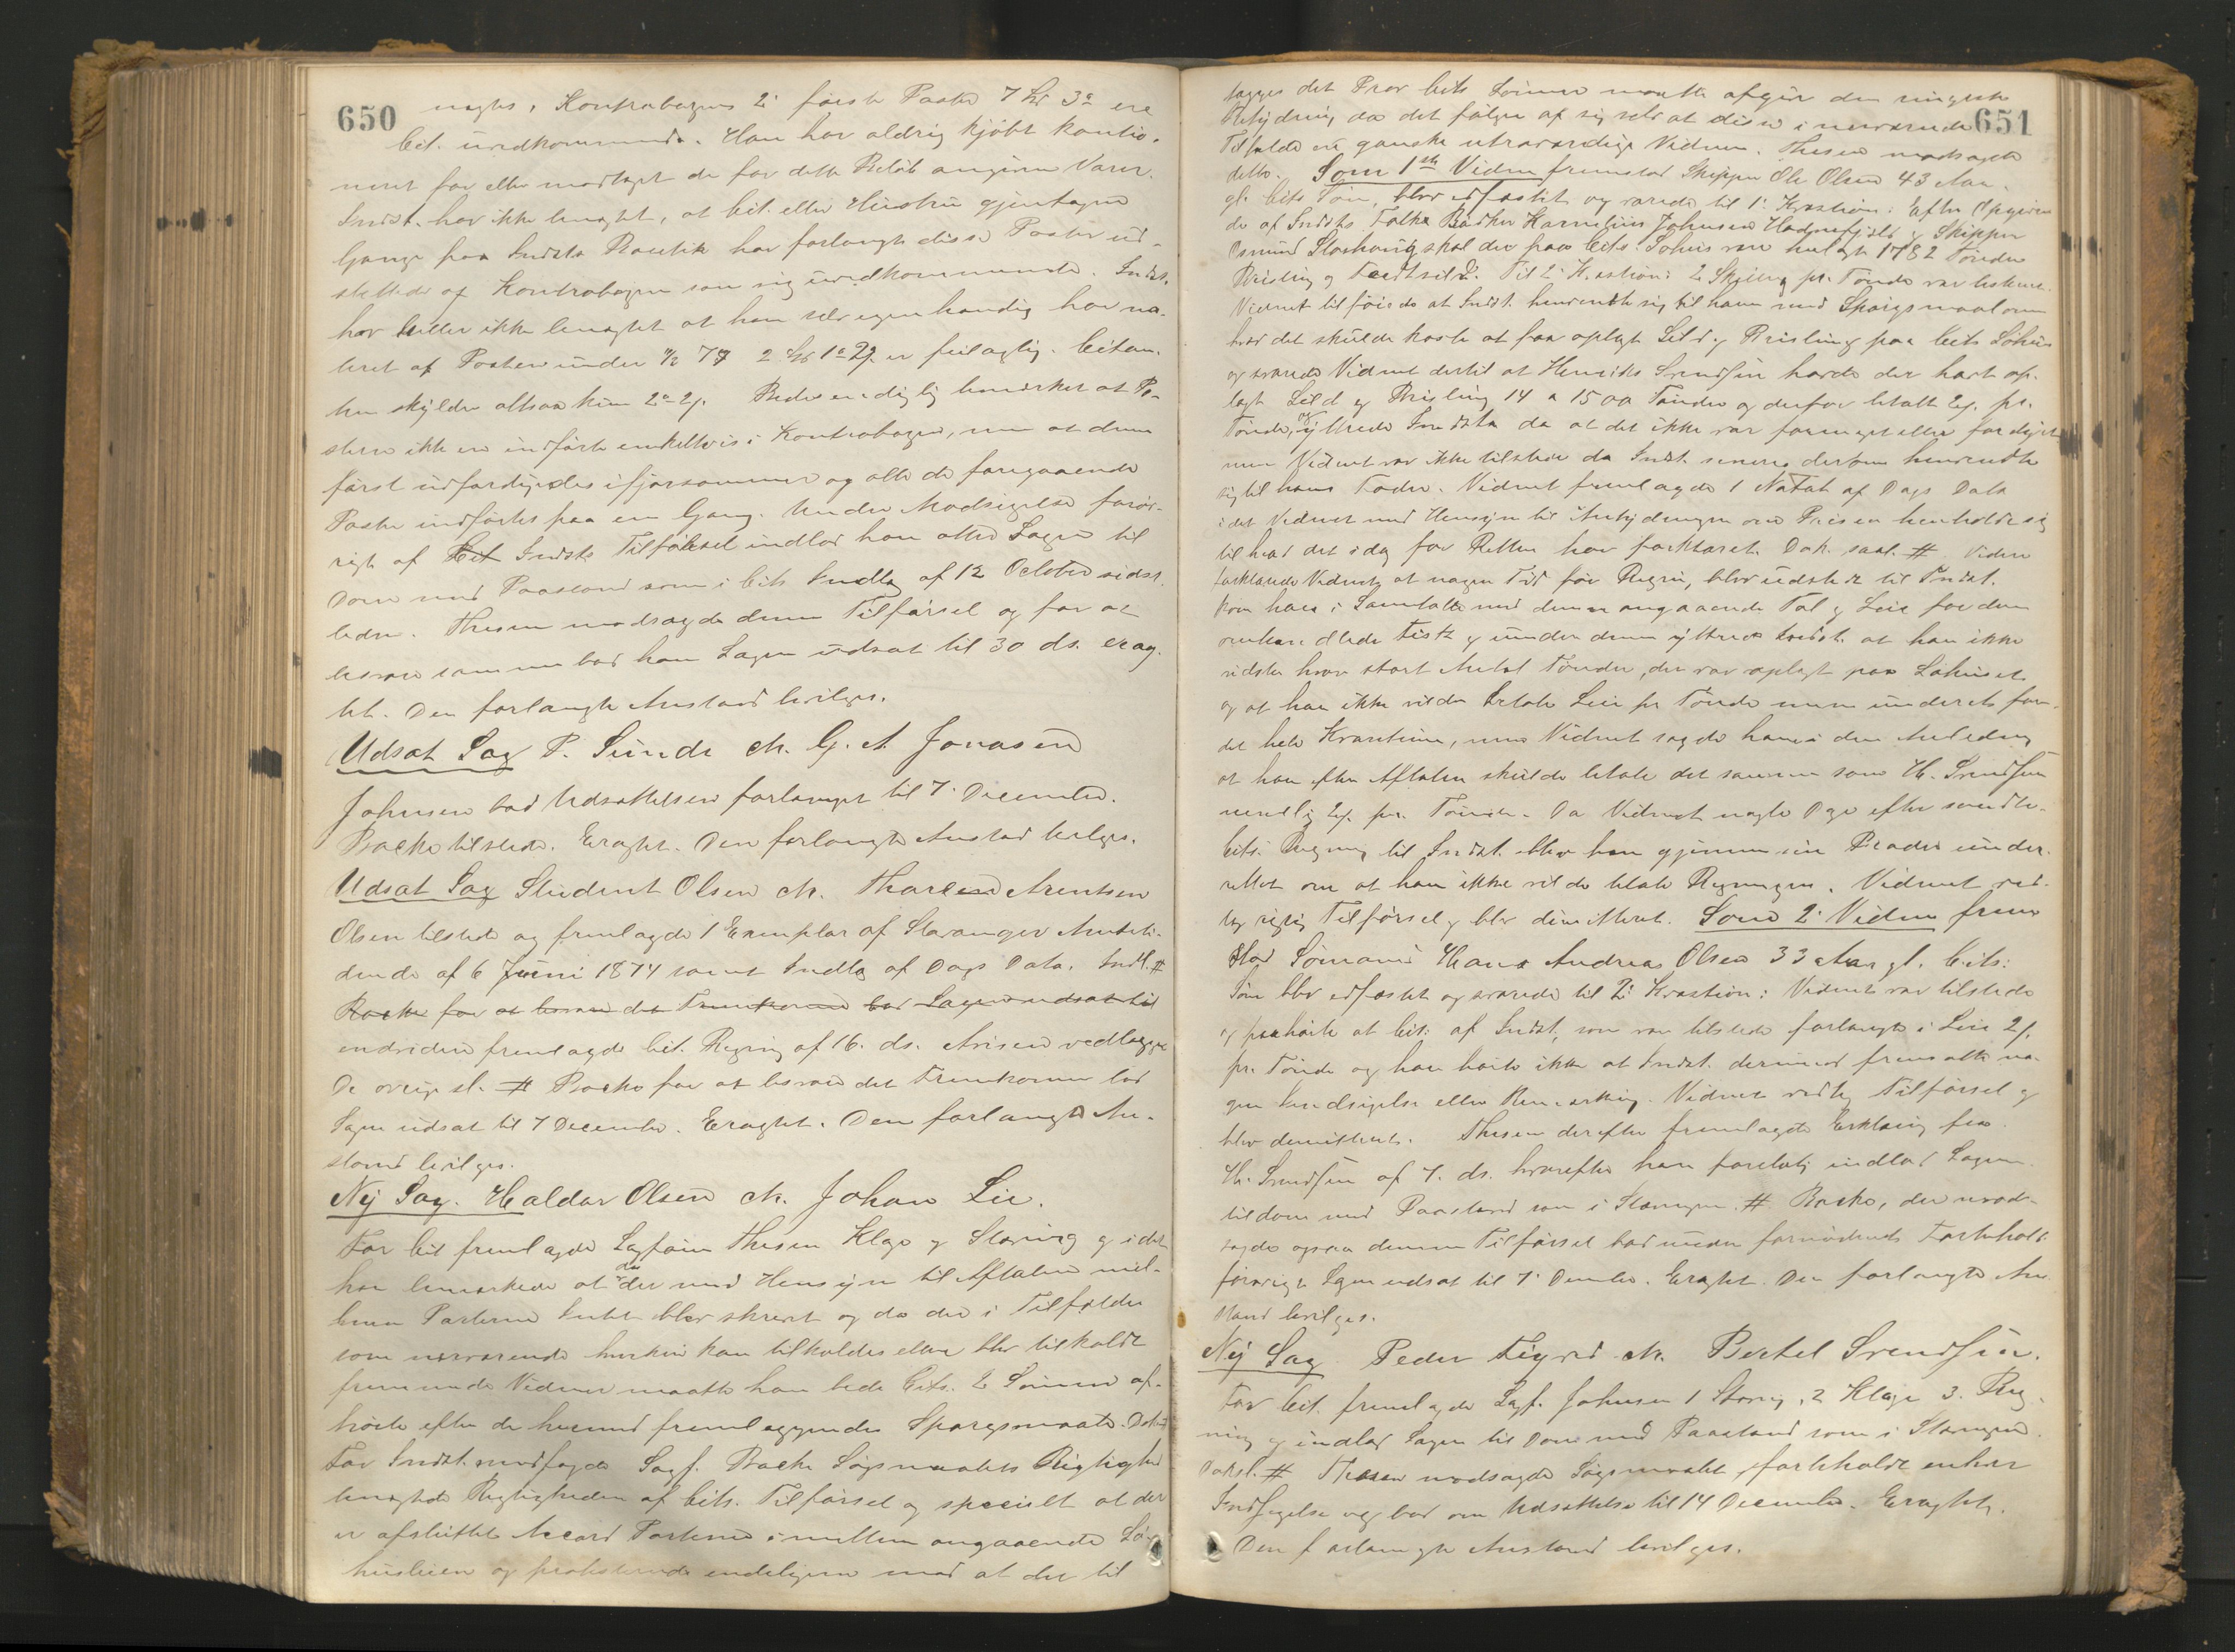 650
negtes. Kontrabogens 2: første Poster 7 Skr 3a ere
Cit. uvedkommende. Han har aldrig kjøbt kontio-
neret for eller modtaget de for dette Beløb angivne Varer.
Indst. har ikke benegtet, at Cit. eller Hustru gjentagne
Gange paa Indsts Boutik har forlangt disse Poster ud-
slettede af Kontrabogen som sig uvedkommende. Indst.
har heller ikke benegtet at han selv egenhændig har no-
teret at Posten under 77 2 1a 2 er feilagtig. Citan-
ten skylder altsaa kun 2a 2. Bedes endelig bemærket at Po-
sterne ikke ere indførte enkeltvis i Kontrabogen, men at denne
først udfærdigedes ifjorsommer og alle de foregaaende
Poster indførtes paa en Gang. Under Modsigelse forøv-
rigt af Cit Indsts Tilførsel indlod han atter Sagen til
Dom med Paastand som i Cits Indlæg af 12 October sidst-
leden. Thesen modsagde denne Tilførsel og for at
besvare samme bad han Sagen udsat til 30 ds. erag-
tet. Den forlangte Anstand bevilges.
Udsat Sag P. Sunde ctr. G. A. Jonasen
Johnsen bad Udsættelsen forlænget til 7. December.
Backe tilstede. Eragtet. Den forlangte Anstand bevilges.
Udsat Sag Student Olsen ctr. Arentsen
Olsen tilstede og fremlagde 1 Exemplar af Stavanger Amtsti-
dende af 6 Juni 1874 samt Indlæg af Dags Dato. Indl. #
Backe for at besvare det Fremkomne bad Sagen udsat til
endvidere fremlagde Cit. Regning af 16. ds. Avisen vedlægges
De øvrige sl. # Backe for at besvare det Fremkomne bad
Sagen udsat til 7 December. Eragtet. Den forlangte An-
stand bevilges.
Ny Sag. Haldor Olsen ctr. Johan Lie.
For Cit fremlagde Sagfører Thesen Klage og Stævning og idet
han bemærkede at da der med Hensyn til Aftalen mel-
lem Parterne Intet blev skrevet og da der i Tilfælde
som nærværende hverken kan tilkaldes eller blev tilkaldt
fremmede Vidner maatte han bede Cits. 2 Sønner af-
hørte efter de hermed fremlæggendes Spørgsmaale. Dok.
For Indst. modsagde Sagf. Backe Søgsmaalets Rigtighed
benegtede Rigtigheden af Cits. Tilførsel og specielt at der
er afsluttet Accord Parterne imellem angaaende Sø-
huslejen og protesterede endeligen mod at der til
651
lægges det Prov Cits Sønner maatte afgive den ringeste
Betydning da det følger af sig selv at disse i nærværende
Tilfælde ere ganske utroværdige Vidner. Thesen modsagde
dette. Som 1ste Vidne fremstod Skipper Ole Olsen 43 Aar
gl. Cits Søn, blev edfæstet og svarede til 1: Kvæstion: Efter Opgiven-
de af Indsts Folk Bødker Karnelius Johnsen Hodnefjeld og Skipper
Osmund skal der paa Cits Søhus være henlagt 1782 Tønder
Brisling og Fedtsild. Til 2: Kvæstion: 2 Skilling pr. Tønde var beskene.
Vidnet tilføiede at Indst. henvendte sig til ham med Spørgsmaal om
hvad det skulde koste at faa oplagt Sild og Brisling paa Cits Søhus
og svarede Vidnet dertil at Henriks Svendsen havde der havt op-
lagt Sild og Brisling 14 a 1500 Tønder og derfor betalt 2. pr.
Tønde, og yttrede Indsts da at det ikke var for meget eller for dyrt
men Vidnet var ikke tilstede da Indst. senere derom henvendte
sig til hans Fader. Vidnet fremlagde 1 Notat af Dags Dato
idet Vidnet med Hensyn til Antydningen om Prisen henholdt sig
til hvad det idag for Retten har forklaret. Dok. saal. # Videre
forklarede Vidnet, at nogen Tid før Regning blev udstedt til Indst.
kom han i Samtale med denne angaaende Tal og Leie for den
omhandlede Fisk og under denne yttrede Indst. at han ikke
vidste hvor stort Antal Tønder, der var oplagt paa Søhuset
og at han ikke vilde betale Leie pr Tønde men under et for
det hele Kvantum, men Vidnet sagde ham i den Anledning
at han efter Aftalen skulde betale det samme som H. Svendsen
nemlig 2. pr. Tønde. Da Vidnet nogle Dage efter sendte
Cits. Regning til Indst. blev han gjennem sin Broder under-
rettet om at han ikke vilde betale Regningen. Vidnet ved-
tog rigtig Tilførsel og blev dimitteret. Som 2. Vidne frem
stod Sømand Hans Andreas Olsen 33 Aar gl. Cits:
Søn blev edfæstet og svarede til 2: Kvæstion: Vidnet var tilstede
og paahørte at Cit. af Indst, som var tilstede forlangte i Leie 2.
pr. Tønde og han hørte ikke at Indst. derimod fremsatte no-
gen Indsigelse eller Bemærkning. Vidnet vedtog Tilførsel og
blev dimitteret. Thesen derefter fremlagde Erklæring fra
H. Svendsen af 7. ds. hvorefter han foreløbig indlod Sagen
til Dom med Paastand som i Stævningen. # Backe, der mod-
sagde ogsaa denne Tilførsel bad under fornødent Forbehold
forøvrigt Sagen udsat til 7. December. Eragtet. Den forlangte An
stand bevilges.
Ny Sag. Peder Tigved ctr. Bertel Svendsen.
For Cit. fremlagde Sagf. Johnsen 1 Stævning, 2 Klage 3. Reg-
ning og indlod Sagen til Dom med Paastand som i Stævningen.
Doksl. # Thesen modsagde Søgsmaalet, forbeholdt enhver
Indsigelse og bad om Udsættelse til 14 December. Eragtet.
Den forlangte Anstand bevilges.